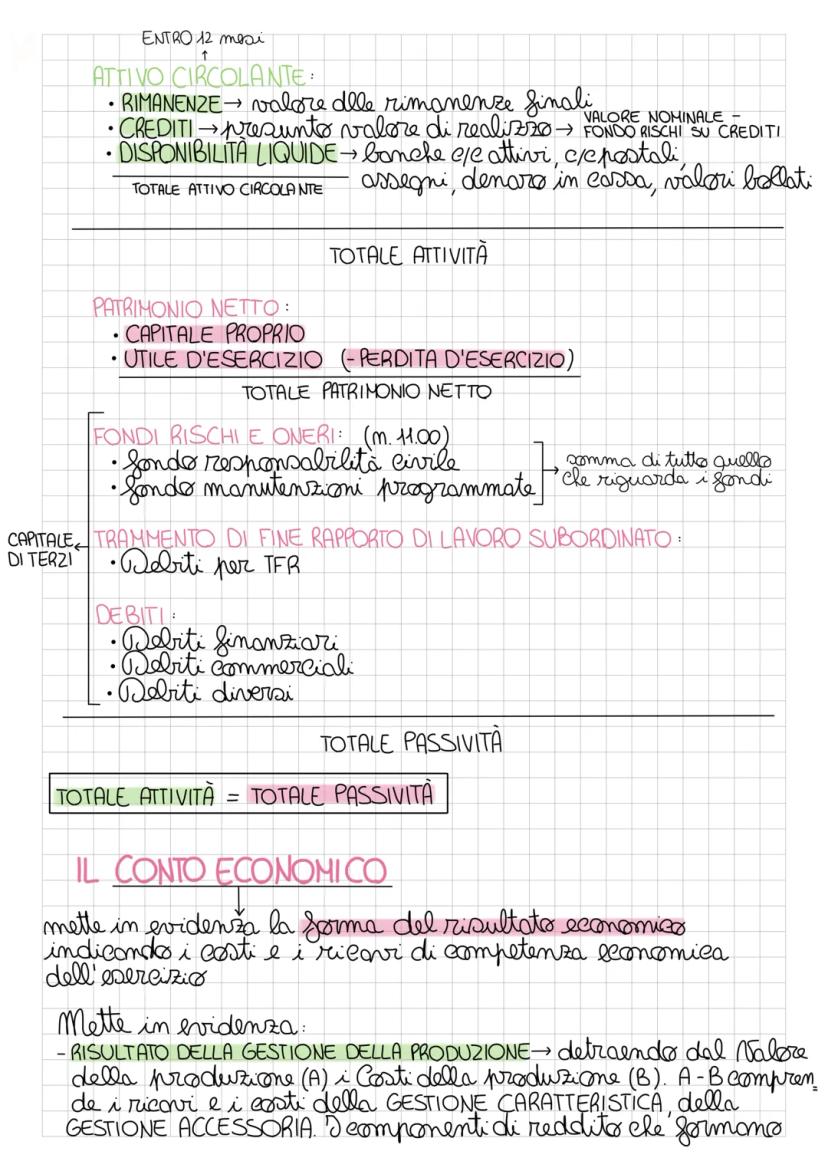 ENTRO 12 mesi
ATTIVO CIRCOLANTE:
• RIMANENZE → valore dlle rimanenze finali
• CREDITI → presunto valore di realizzo → VALORE NOMINALE - FONDO RISCHI SU CREDITI
• DISPONIBILITÀ LIQUIDE → banche c/c attivi, c/c postali,
assegni, denaro in cassa, valori bollati
TOTALE ATTIVO CIRCOLANTE
TOTALE ATTIVITÀ
PATRIMONIO NETTO:
• CAPITALE PROPRIO
• UTILE D'ESERCIZIO (-PERDITA D'ESERCIZIO)
TOTALE PATRIMONIO NETTO
FONDI RISCHI E ONERI: (n. 11.00)
• fondo responsabilità civile
• fondo manutenzioni programmate
→ somma di tutto quello
che riguarda i fondi
CAPITALE
DI TERZI
TRAMMENTO DI FINE RAPPORTO DI LAVORO SUBORDINATO:
• Debiti per TFR
DEBITI:
• Debiti finanziari
• Debiti commerciali
• Debiti diversi
TOTALE PASSIVITÀ
TOTALE ATTIVITÀ = TOTALE PASSIVITÀ
IL CONTO ECONOMICO
mette in evidenza la forma del risultato economico
indicando i costi e i ricavi di competenza economica
dell'esercizio
Mette in evidenza:
- RISULTATO DELLA GESTIONE DELLA PRODUZIONE → detraendo dal Valore
della produzione (A) i Costi della produzione (B). A-B compren=
de i ricavi e i costi della GESTIONE CARATTERISTICA, della
GESTIONE ACCESSORIA. I componenti di reddito che formano